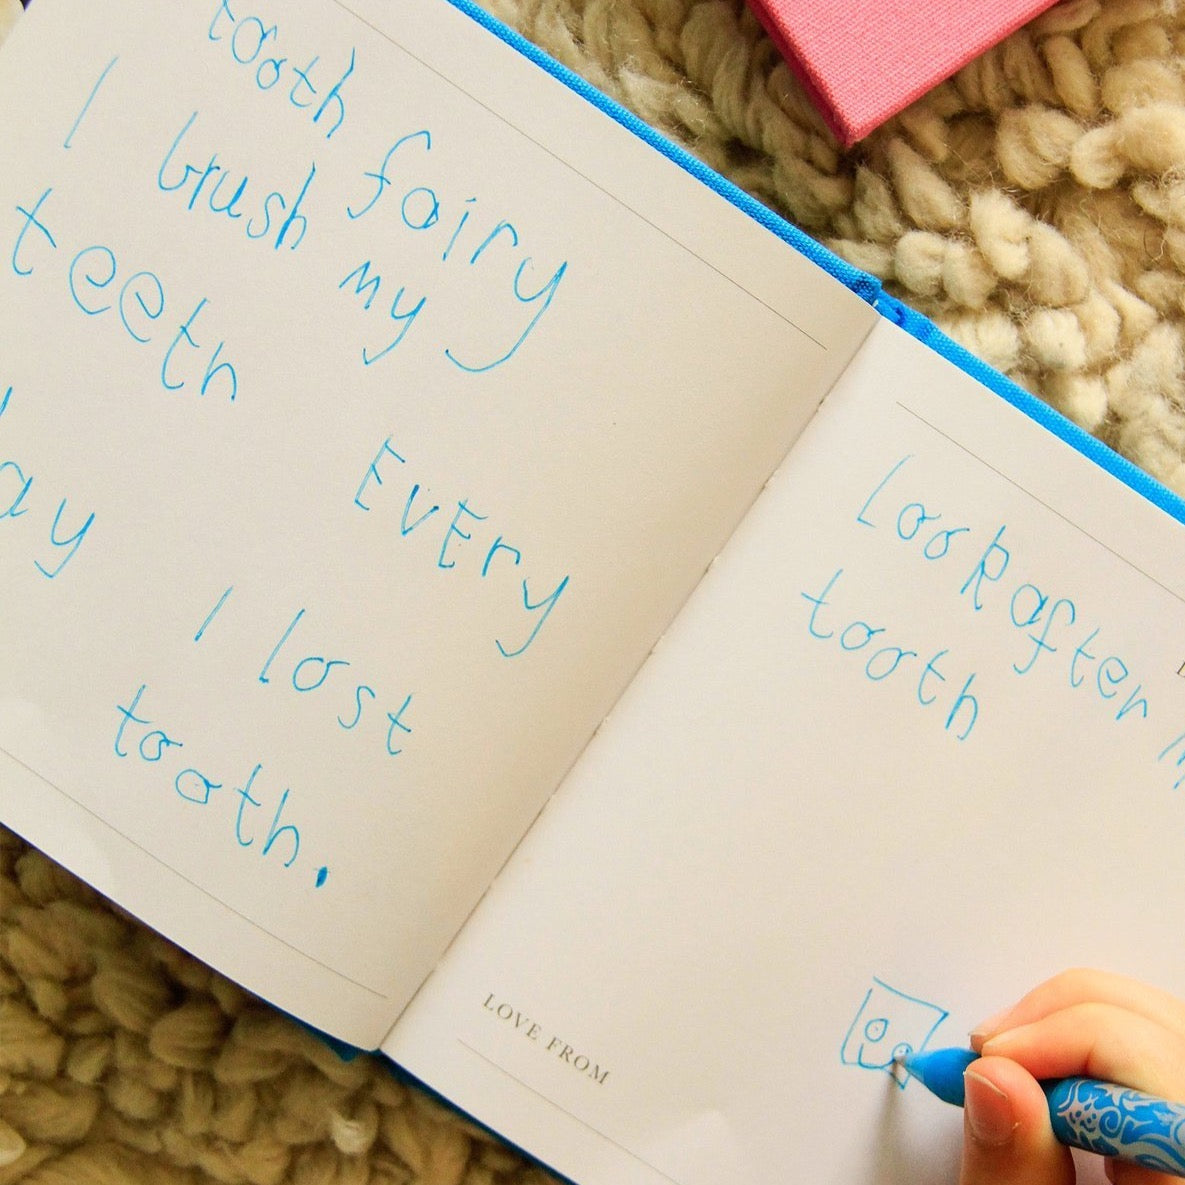 tooth fairy
I brush my
teeth EvEry
ay I lost
tooth.
Look after
tooth
LOVE FROM